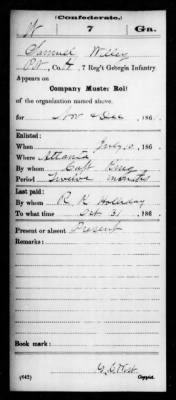 (Confederate.)
W 7 Ga.
Samuel Willey
Pvt, Co. 7 Reg't Georgia Infantry.
Appears on
Company Muster Roll
of the organization named above,
for Nov & Dec, 186
Enlisted:
When July 10, 186
Where Atlanta
By whom Capt King
Period Twelve months
Last paid:
By whom R K Holliday
To what time Oct 31, 186
Present or absent Present
Remarks:
Book mark:
(642)
Copyist.